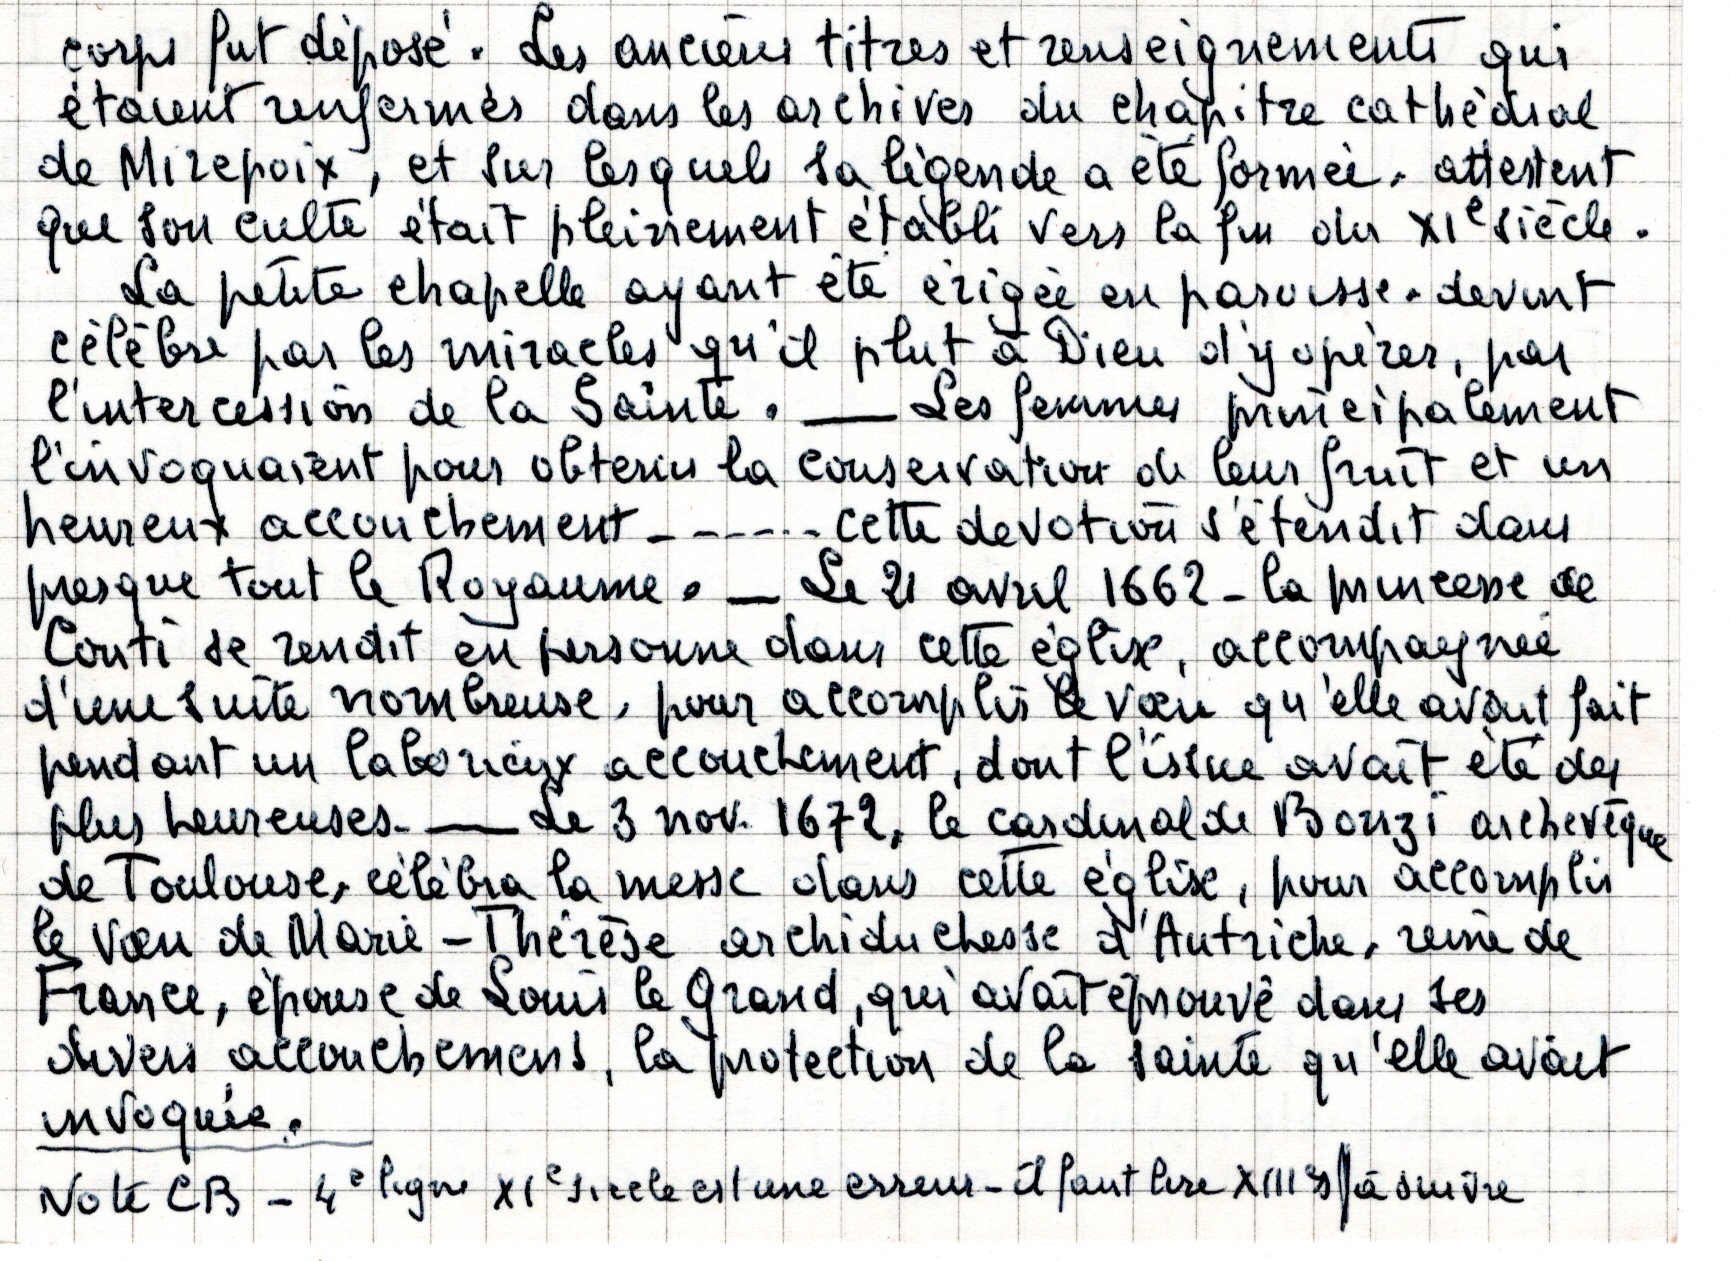 corps fut déposé. Les anciens titres et renseignements qui
étaient renfermés dans les archives du chapitre cathédral
de Mirepoix, et sur lesquels sa légende a été formée. attestent
que son culte était pleinement établi vers la fin du XIe siècle.
La petite chapelle ayant été érigée en paroisse. devint
célèbre par les miracles qu'il plut à Dieu d'y opérer, par
l'intercession de la Sainte. — Les femmes principalement
l'invoquaient pour obtenir la conservation de leur fruit et un
heureux accouchement - - - - - - cette devotion s'étendit dans
presque tout le Royaume. — Le 21 avril 1662 - la princesse de
Conti se rendit en personne dans cette église, accompagnée
d'une suite nombreuse, pour accomplir le vœu qu'elle avait fait
pendant un laborieux accouchement, dont l'issue avait été des
plus heureuses. — Le 3 nov. 1672, le cardinal de Bonzi archevêque
de Toulouse, célébra la messe dans cette église, pour accomplir
le vœu de Marie-Thérèse archiduchesse d'Autriche, reine de
France, épouse de Louis le Grand, qui avait éprouvé dans ses
divers accouchemens, la protection de la sainte qu'elle avait
invoquée.
Note CB - 4e ligne XIe siècle est une erreur - il faut lire XIIIe s / à suivre